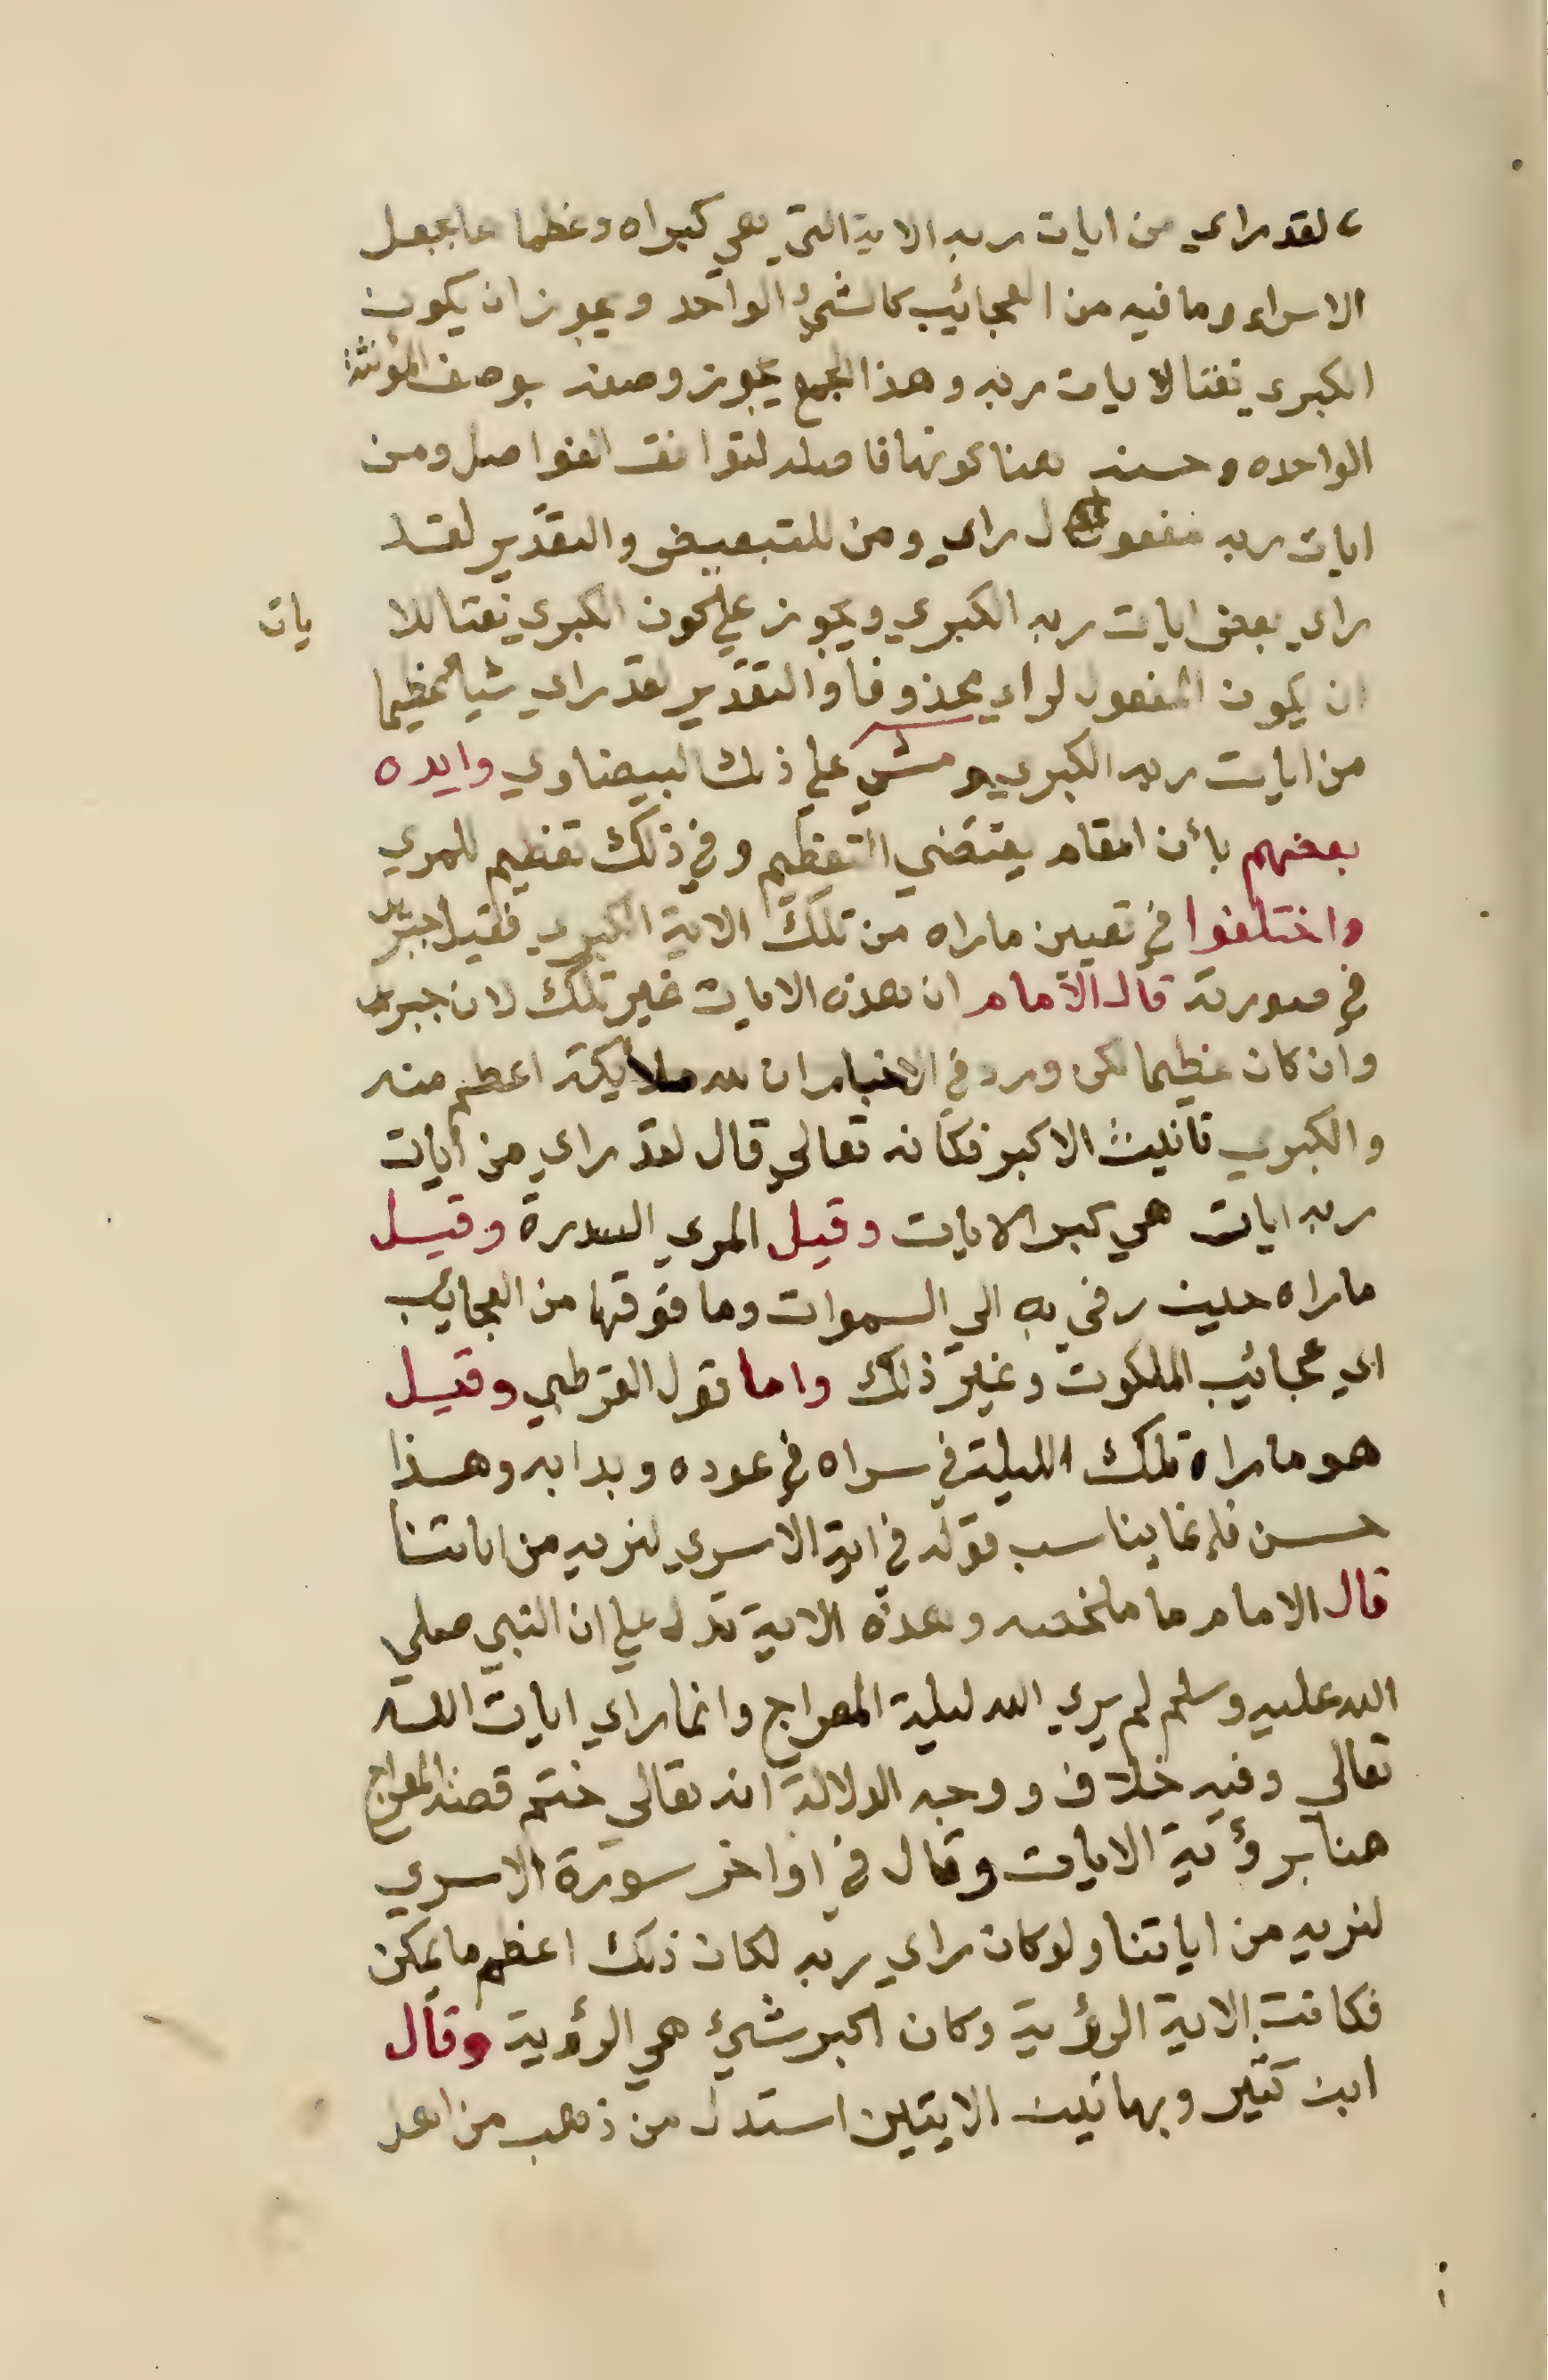 لقد راي من ايات ربه الاية التي هي كبراه وعظما ها بجعل
الاسراء وما فيه من العجائيب كالشيئ الواحد ويجوز ان يكون
الكبري نعتا لايات ربه وهذا الجمع يجوز وصفه بوصف المؤنثة
الواحده وحسنه هنا كونها فاصله لتوافق الفواصل ومن
ايات ربه مفعول ل راي ومن للتبعيض والتقدير لقد
راي بعض ايات ربه الكبري ويجوز علي كون الكبري نعتا للا يات
ان يكون المفعول لراي محذوفا والتقدير لقد راي شيا عظيما
من ايات ربه الكبري ومشي علي ذلك البيضاوي وايده
بعضهم بأن المقام يقتضي التعظيم وفي ذلك تعظيم للمري
واختلفوا في تعيين ماراه من تلك الاية الكبري فقيل جبريل
في صورته قال الامام ان هذه الايات غير تلك لان جبريل
وان كان عظيما لكن ورد في الاخبار ان لله ملايكة اعظم منه
والكبري تانيث الاكبر فكانه تعالي قال لقد راي من ايات
ربه ايات هي كبر الايات وقيل المري السدرة وقيل
ماراه حين رقي به الي السموات وما فوقها من العجايب
اي عجائيب الملكوت وغير ذلك واما قول القرطبي وقيل
هو ماراه تلك الليلة في سراه في عوده وبدايه وهذا
حسن فإنما يناسب قوله في اية الاسري لنريه من اياتنا
قال الامام ما ملخصه وهذه الاية تدل علي ان النبي صلي
الله عليه وسلم لم يري الله ليلة المعراج وانما راي ايات الله
تعالي وفيه خلاف ووجه الدلالة انه تعالي ختم قصة المعراج
هنا برؤية الايات وقال في اواخر سورة الاسري
لنريه من اياتنا ولو كان راي ربه لكان ذلك اعظم ما يمكن
فكانت الاية الرؤية وكان اكبر شيئ هي الرؤية وقال
ابن كثير وبهاتين الايتين استدل من ذهب من اهل